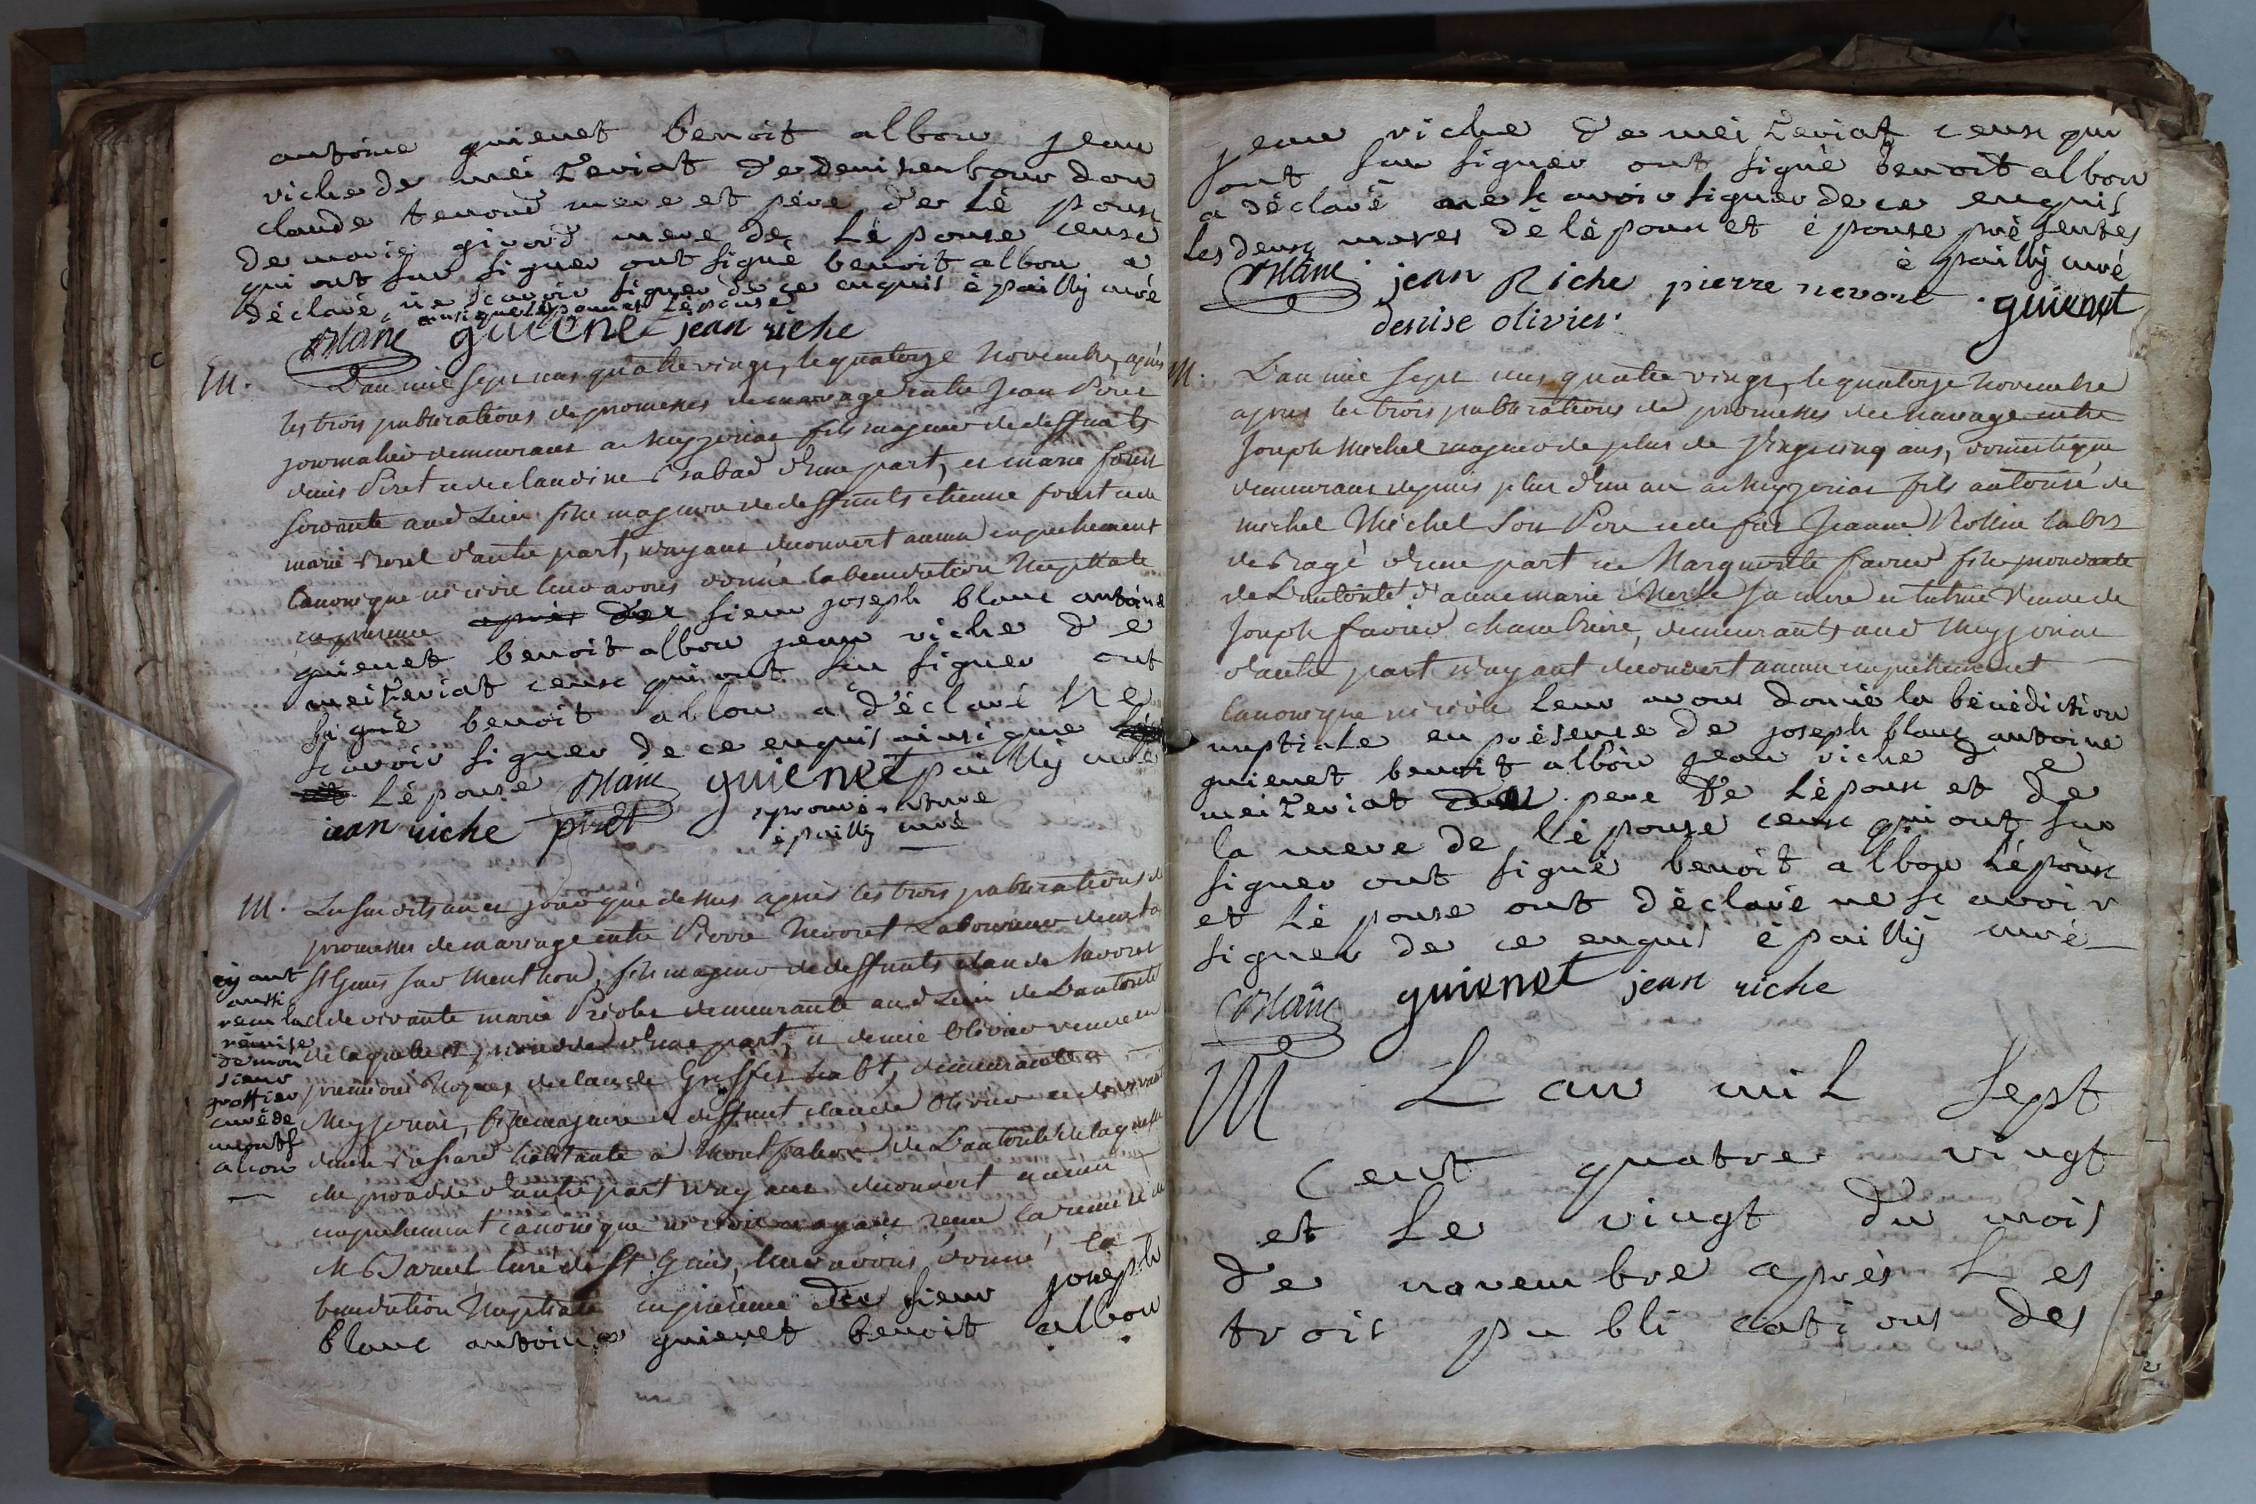 antoine guienet benoit albon jean
riche de meizeriat de denise
claude tenoud mere et pére de Lé poux
de marie girord mere de Lé pouse ceuxc
qui ont sur signer ont signé benoit albon a
déclaré ne scavoir signer de ce enquis é pailly curé
ainsi que Lépoux et Lépouse
Blanc guienet jean riche
M. L'an mil sept cens quatre vingt, le quatorze Novembre, après
les trois publications de promesses de mariage entre Jean Piret
journalier demeurant a Meyzeriat fils majeur de deffunts
denis Piret et de claudine d'une part, et marie
servante aud Lieu fille majeure de deffunts etienne et de
marie d'autre part, n'ayant decouvert aucun empechement
Canonique ni civil leur avons donné la benediction Nuptiale
en presence sieur joseph blanc antoine
guienet benoit albon jean riche de
meizeriat ceuxc qui ont su signer ont
signé benoit albon a déclaré Ne
scavoir signer de ce enquis ainsi que
Lépouse Blanc guienet pailly curé
jean riche piret
é pailly curé
M. Les susdits an et jour que dessus après les trois publications de
promesses de mariage entre Pierre Nevoret Laboureur
St Genis sur Menthon, fils majeur de deffunts claude Nevoret
et de vivante marie demeurante aud Lieu de L'autorité
de laquelle il procede d'une part, et denise Olivier veuve en
premieres Nopces de claude demeurante a
Meyzeriat, fille majeure de deffunt claude Olivier et de vivante
habitante a Montfalcon de L'autorité de laquelle
elle procede d'autre part n'ayant decouvert aucun
empechement canonique ni civil et ayant recu la remise de
M curé de St Genis, leur avons donné la
benediction Nuptiale en presence sieur joseph
blanc antoine guienet benoit albon
ayant
aussi
recu la
remise
de mon
sieur
curé de
montf
alcon
jean riche de meizeriat ceux qui
ont su signer ont signé benoit albon
a déclaré ne scavoir signer de ce enquis
les deux meres de lépoux et épouse présentes
é pailly curé
Blanc jean Riche pierre nevoret guienet
denise olivier.
M. L'an mil sept cens quatre vingt, le quatorze Novembre
apres les trois publications de promesses de mariage entre
Joseph Michel majeur de plus de vingt cinq ans, domestique
demeurant depuis plus d'un an a Meyzeriat fils autorisé de
michel Michel son Pere et de feue Jeanne
d'une part et Marguerite favier fille procedante
de L'autorité d'anne marie Merle sa mere et tutrice Veuve de
Joseph favier demeurants aud Meyzeriat
d'autre part n'ayant decouvert aucun empechement
Canonique ni civil Leur avons donné la bénédiction
nuptiale en présence de joseph blanc antoine
guienet benoit albon jean riche de
meizeriat pere de Lépoux et de
la mere de Lé pouse ceux qui ont su
signer ont signé benoit albon Lépoux
et Lé pouse ont déclaré ne sc avoir
signer de ce enquis é pailly curé
Blanc guienet jean riche
M L an mil sept
cent quatre vingt
et Le vingt du mois
de novembre après L es
trois pu bli cations des